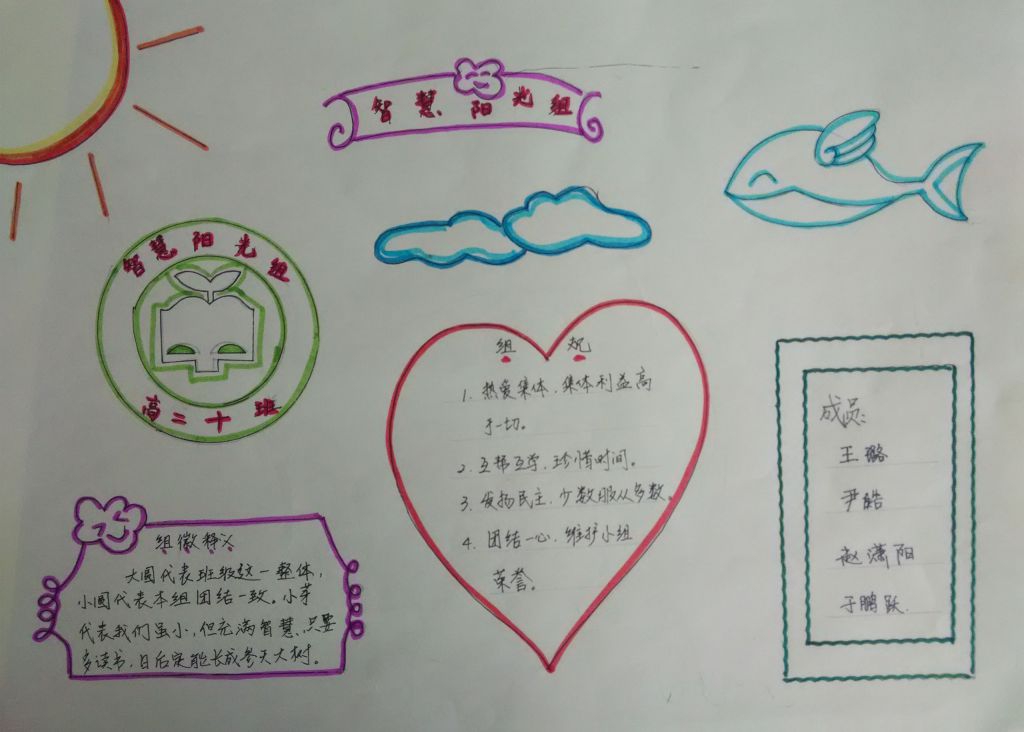 智慧阳光组
智慧阳光组
高二十班
组规
1. 热爱集体、集体利益高
于一切。
2. 互帮互学、珍惜时间。
3. 发扬民主、少数服从多数。
4. 团结一心、维护小组
荣誉。
成员:
王璐
尹皓
赵潇阳
于鹏跃.
组徽释义
大圆代表班级这一整体,
小圆代表本组团结一致。小芽
代表我们虽小,但充满智慧、只要
多读书,日后定能长成参天大树。